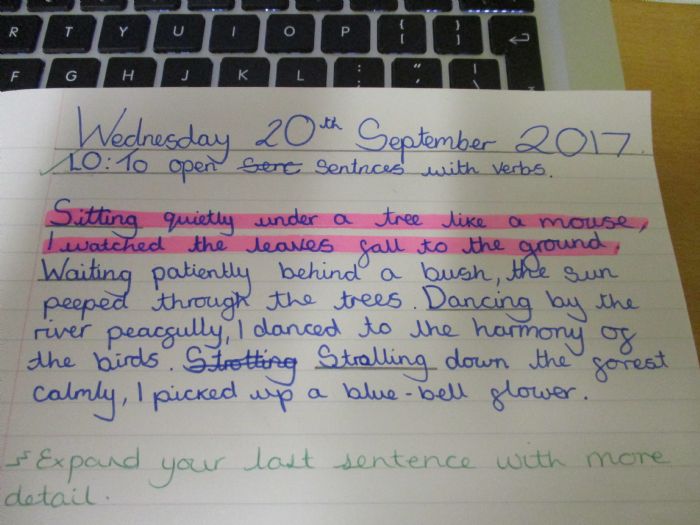 R T Y U I O P { [ } ]
F G H J K L : ; " ' | \
Wednesday 20th September 2017.
LO: To open ~~Senc~~ sentnces with verbs.
Sitting quietly under a tree like a mouse,
I watched the leaves fall to the ground.
Waiting patiently behind a bush, the sun
peeped through the trees. Dancing by the
river peacfully, I danced to the harmony of
the birds. ~~Strotting~~ Stralling down the forest
calmly, I picked up a blue-bell flower.
Expand your last sentence with more
detail.